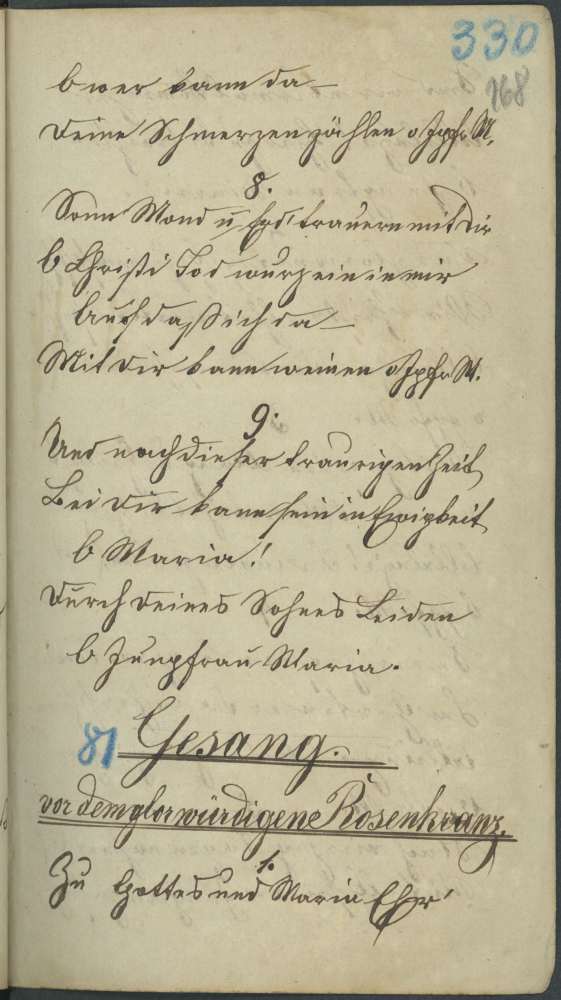 330
168
O wer kann da
Deine Schmerzen zählen o Jgfr. M.
8.
Sonn Mond u Erd' trauern mit dir
O Christi Tod wurz ein in mir
Auf daß ich da
Mit dir kann weinen o Jgfr M.
9.
Und nach dieser traurigen Zeit
Bei dir kann sein in Ewigkeit
O Maria!
Durch deines Sohnes Leiden
O Jungfrau Maria.
81 Gesang.
vor dem glorwürdigene Rosenkranz.
1.
Zu Gottes und Maria Ehr'